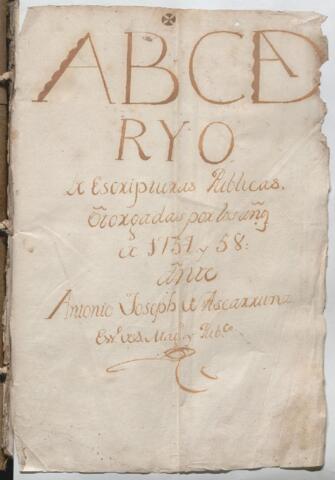 ABCDA
RYO
de Escripturas Publicas,
Otorgadas por los añs
de 1757 y 58:
Ante
Antonio Joseph de Ascarruna
Essno de S. Magd. y Pubco